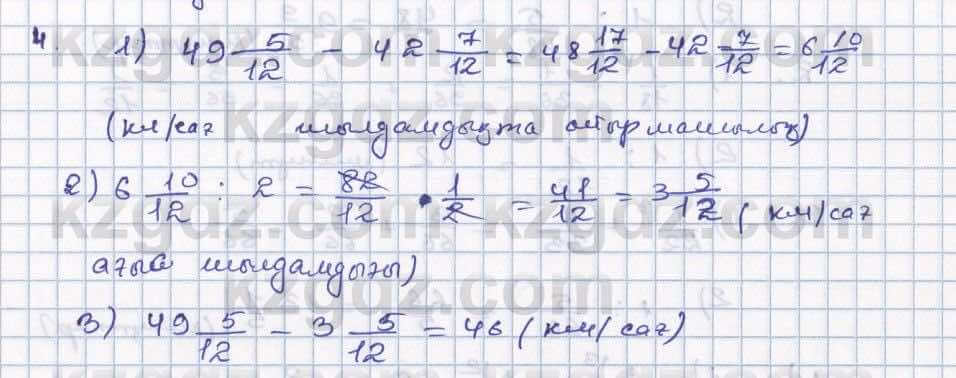 4. 1) 49 5/12 - 42 7/12 = 48 17/12 - 42 7/12 = 6 10/12
(км/сағ жылдамдықта айырмашылық)
2) 6 10/12 : 2 = 82/12 · 1/2 = 41/12 = 3 5/12 (км/сағ
ағыс жылдамдығы)
3) 49 5/12 - 3 5/12 = 46 (км/сағ)